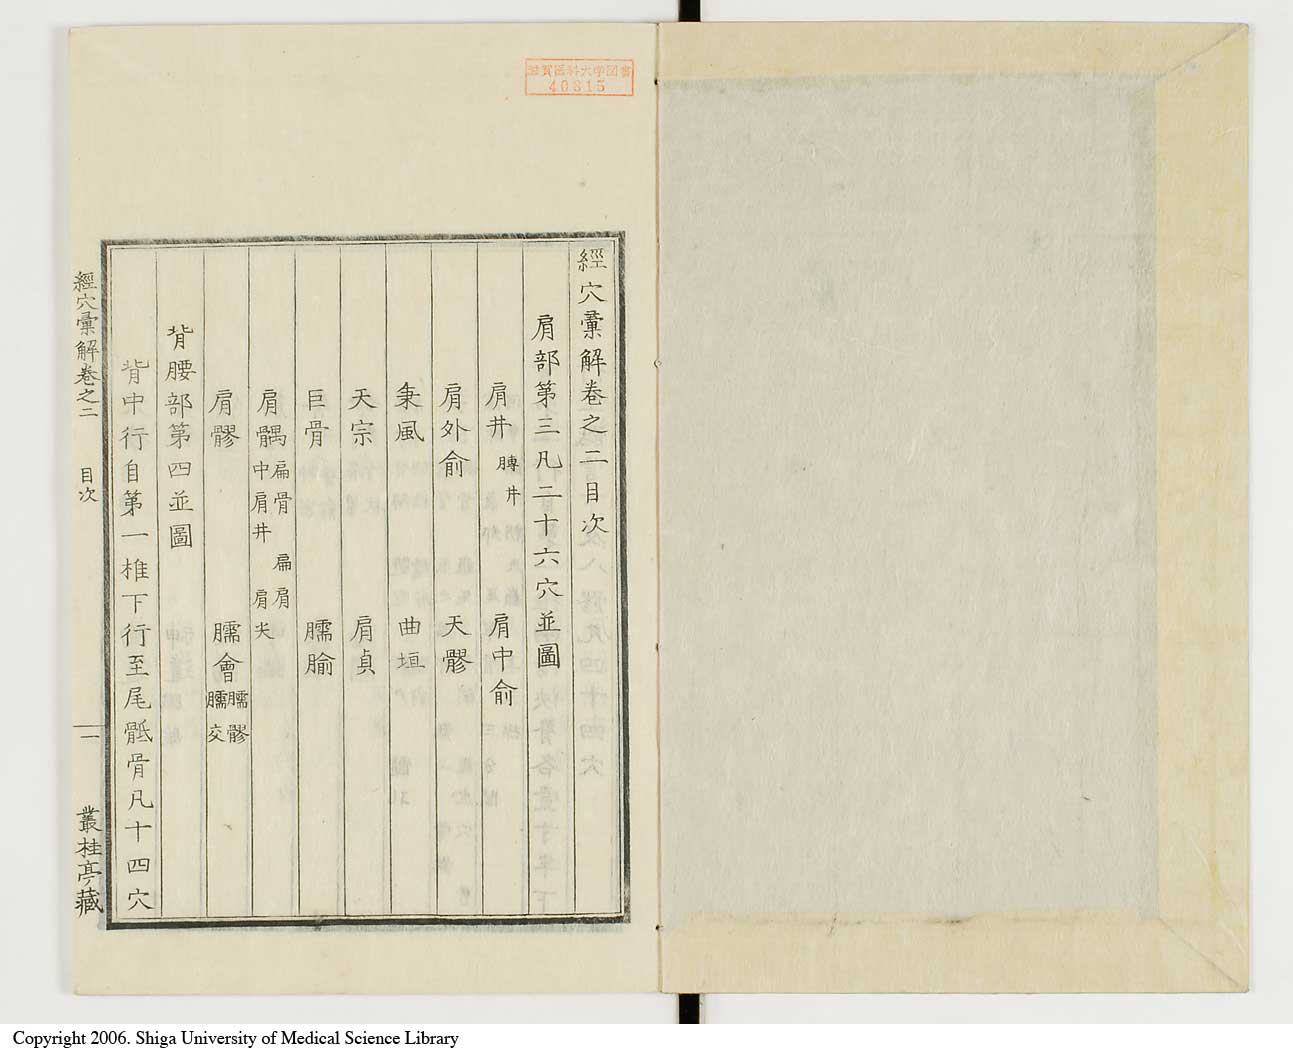 滋賀医科大学図書
40815
經穴彙解卷之二目次
肩部第三凡二十六穴並圖
肩井 膞井 肩中俞
肩外俞 天髎
秉風 曲垣
天宗 肩貞
巨骨 臑腧
肩髃 扁骨 扁肩 中肩井 肩尖
肩髎 臑會 臑髎 臑交
背腰部第四並圖
背中行自第一椎下行至尾骶骨凡十四穴
經穴彙解卷之二 目次 一 叢桂亭藏
Copyright 2006. Shiga University of Medical Science Library